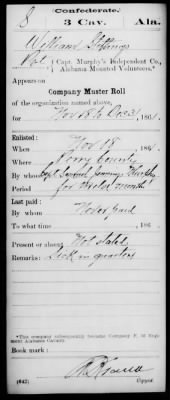 (Confederate.)
8 3 Cav. Ala.
William
Pvt. { Capt. Murphy's Independent Co.,
Alabama Mounted Volunteers.*
Appears on
Company Muster Roll
of the organization named above,
for Nov 18 to Dec 31, 186
Enlisted:
When Nov 18, 186
Where Perry County
By whom Capt Samuel Jennings Murphy
Period for twelve months
Last paid:
By whom Never paid
To what time , 186 .
Present or absent Not stated
Remarks: Sick in quarters
*This company subsequently became Company F, 3d Regiment Alabama Cavalry.
Book mark:
(642) Copyist.